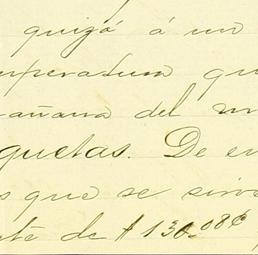 quizá á un
mperatura qu
añana del m
quetas. De en
s que se sirve
te de $130.08¢